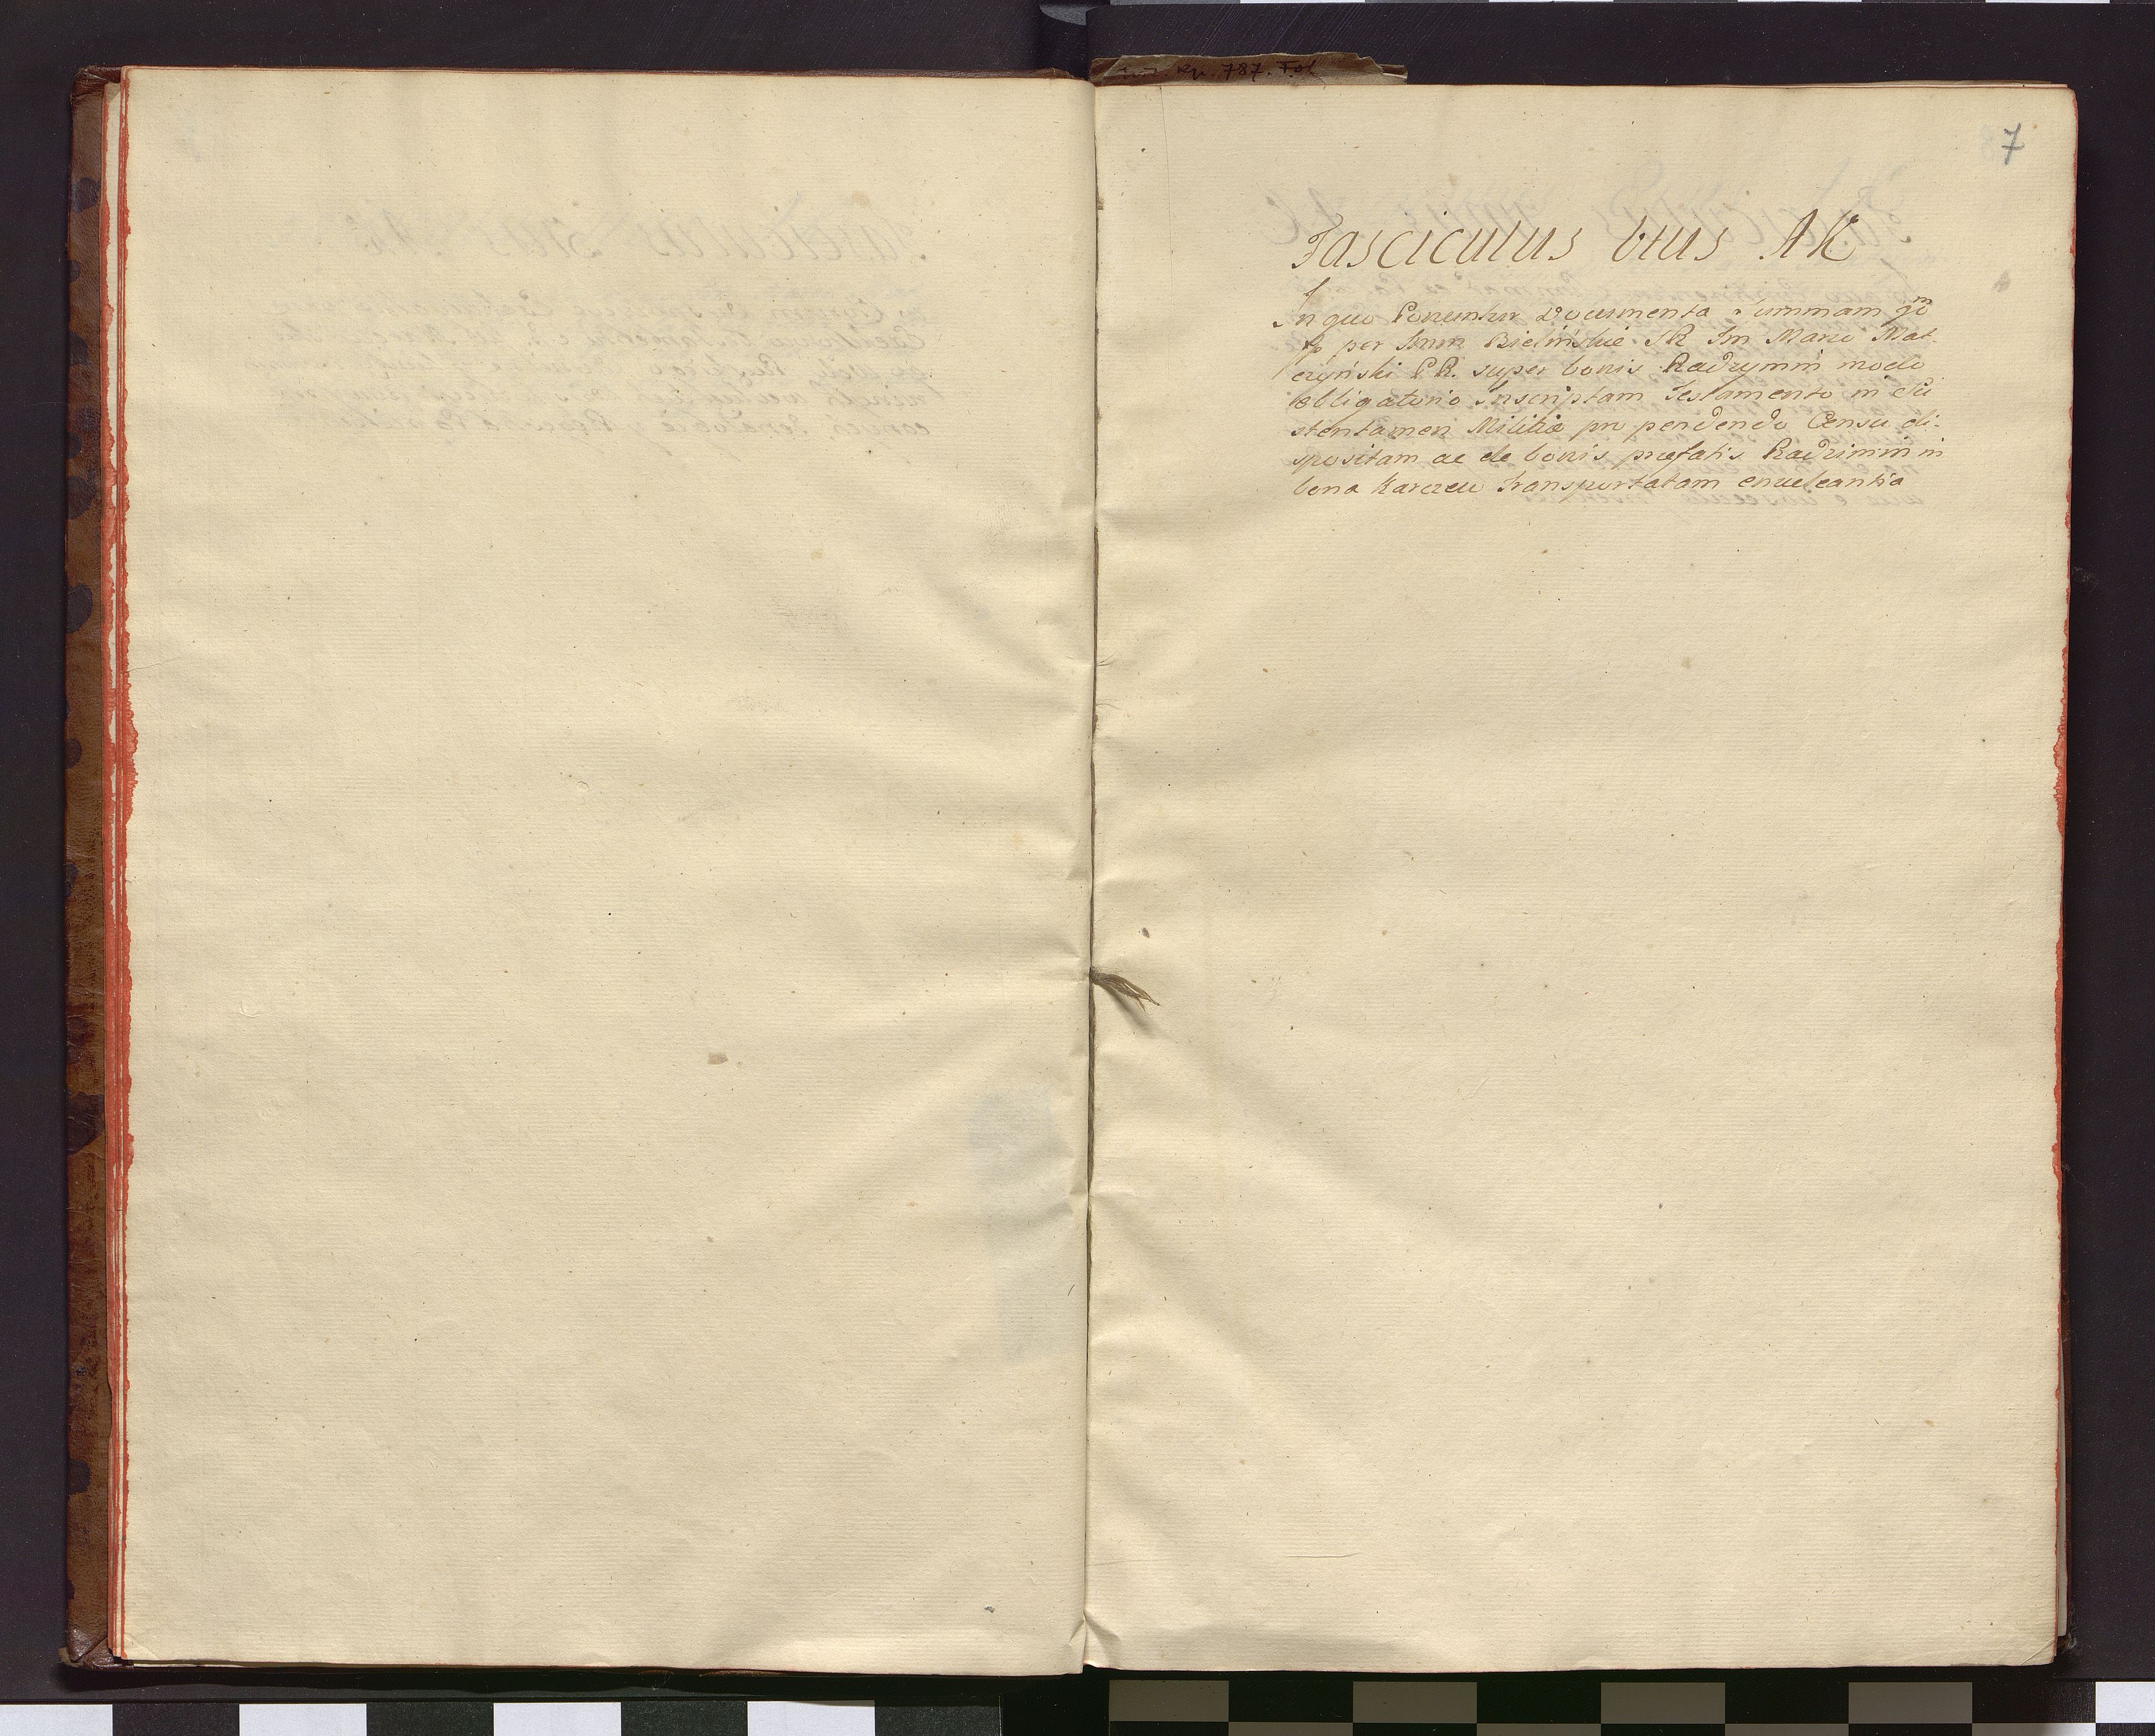 787. Fol
7
Fasciculus 6tus AK
In quo Ponuntur Documenta Summam
per Bielińskie SR Im Marco Mat-
czyński PR. super bonis Radzymin modo
obligatorio Inscriptam Testamento in Su
stentamen Militiæ pro pendendo Censu di-
spositam ac de bonis præfatis Radzimin in
bona Karczew Transportatam enucleantia